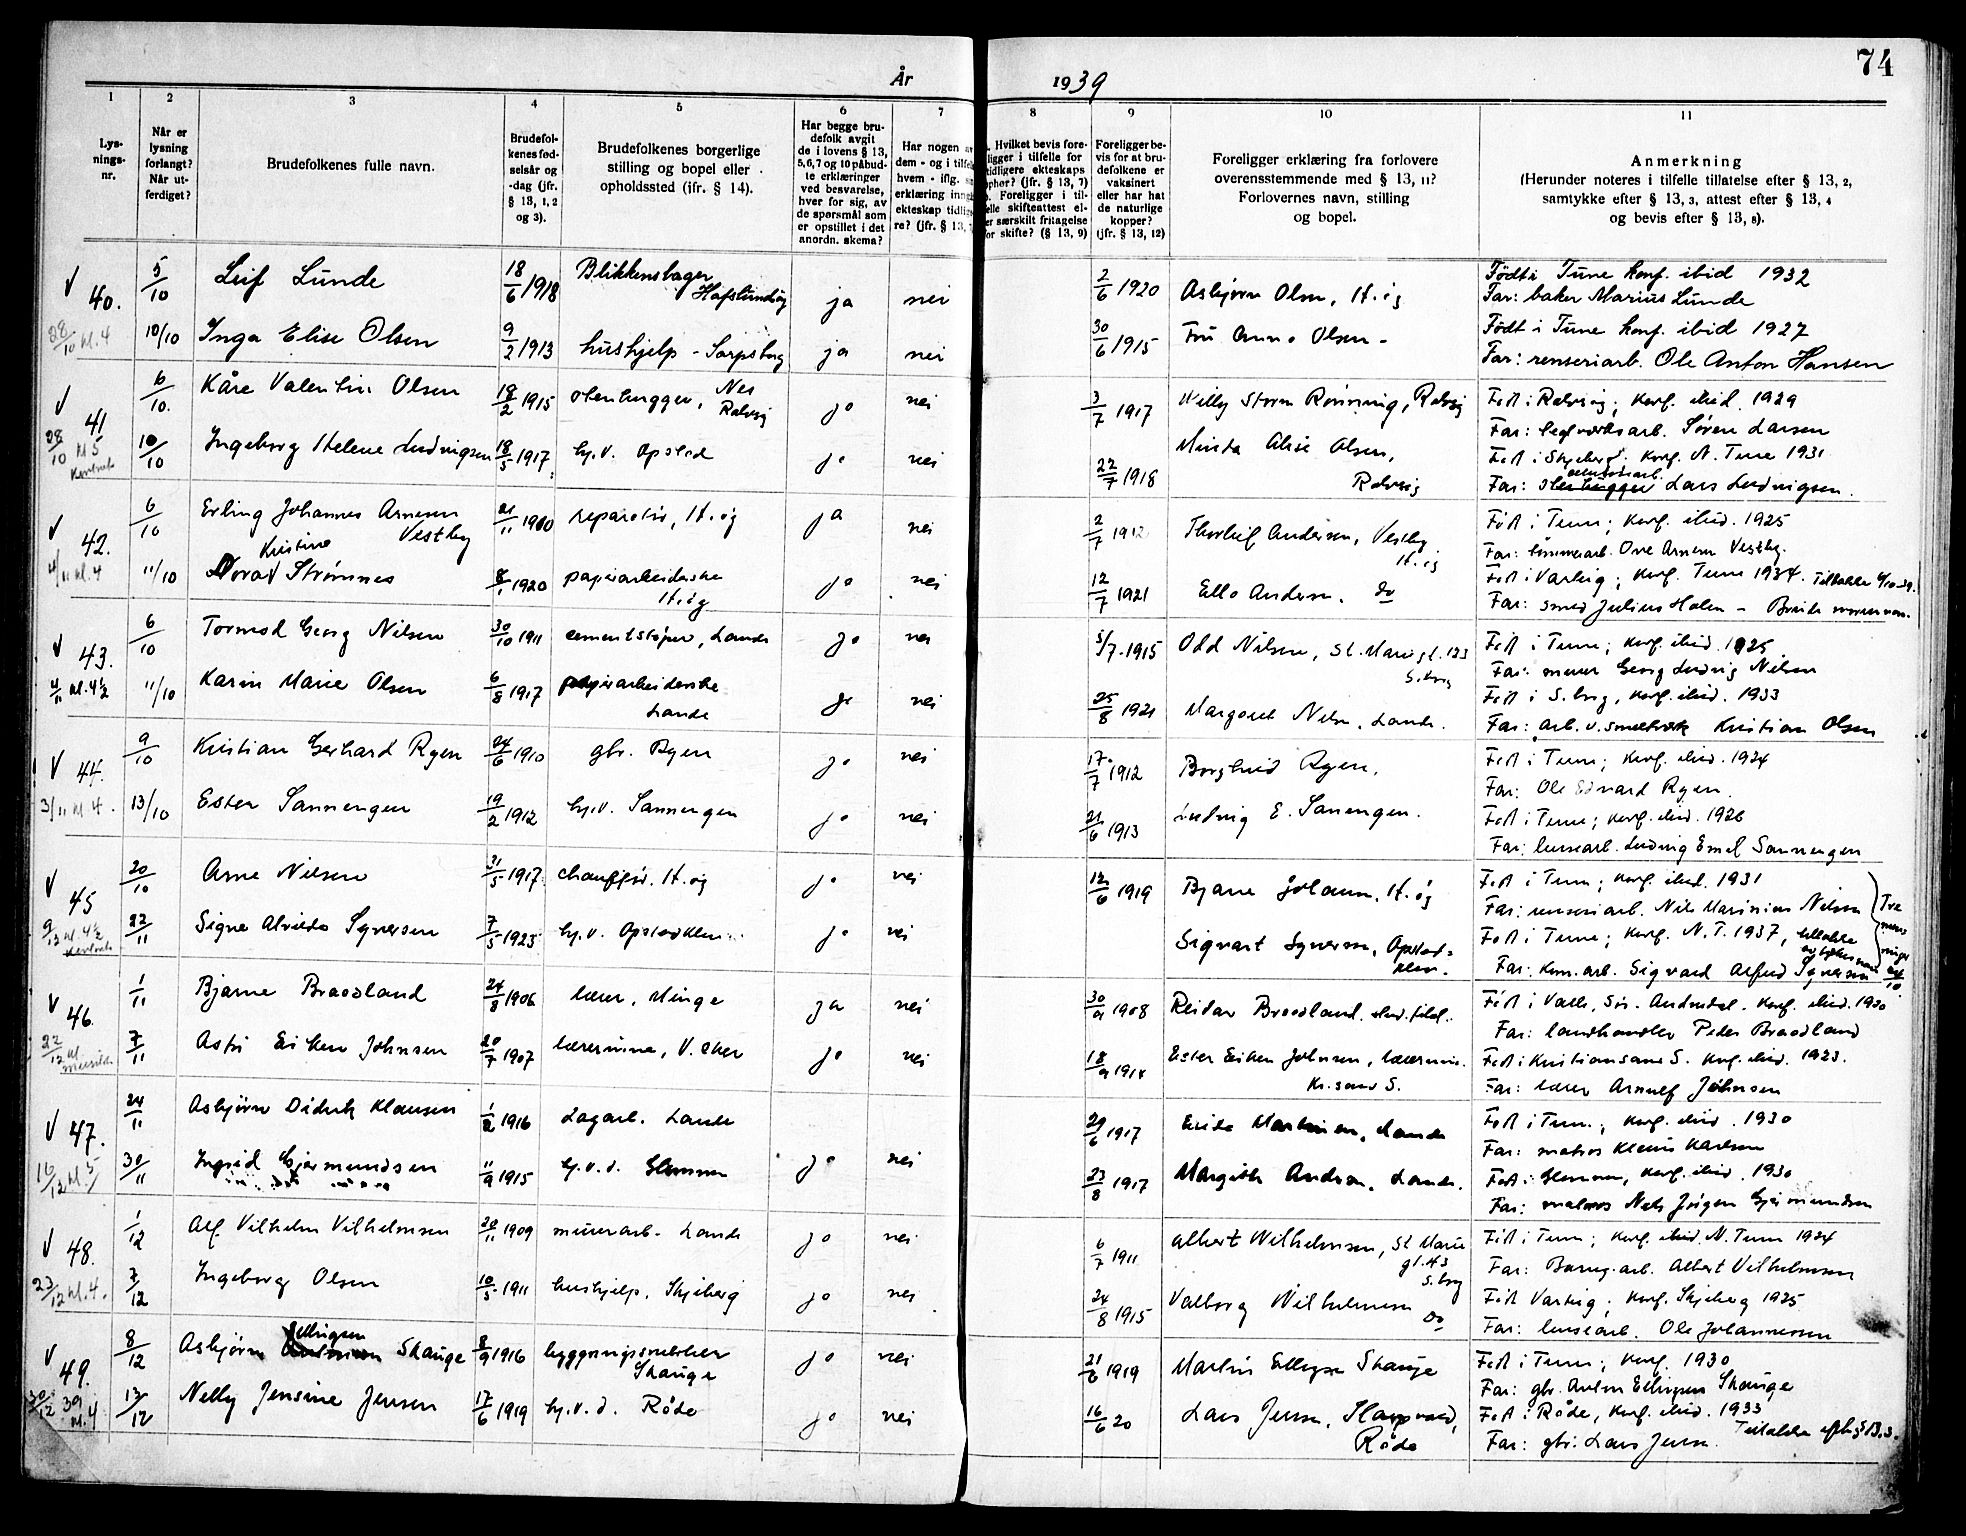 74
År 1939
1 2 3 4 5 6 7 8 9 10 11
Lys-
nings-
nr.
Når er
lysning
forlangt?
Når ut-
ferdiget?
Brudefolkenes fulle navn.
Brudefol-
kenes fød-
selsår og
-dag (jfr.
§ 13, 1, 2
og 3).
Brudefolkenes borgerlige
stilling og bopel eller
opholdssted (ifr. § 14).
Har begge bru-
defolk avgit
de i lovens § 13,
5, 6, 7 og 10 påbud-
te erklæringer
ved besvarelse,
hver for sig, av
de spørsmål som
er opstillet i det
anordn. skema?
Har nogen
dem - og i
hvem - iflg.
erklæring
ekteskap
re? (jfr. § 13,
Hvilket bevis fore-
ligger i tilfelle for
tidligere ekteskaps
ophør? (jfr. § 13, 7)
Foreligger i til-
elle skifteattest el-
er særskilt fritagelse
for skifte? (§ 13, 9)
Foreligger be-
vis for at bru-
defolkene er
vaksinert
eller har hat
de naturlige
kopper?
(jfr. § 13, 12)
Foreligger erklæring fra forlovere
overensstemmende med § 13, 11?
Forlovernes navn, stilling
og bopel.
Anmerkning
(Herunder noteres i tilfelle tillatelse efter § 13, 2,
samtykke efter § 13, 3, attest efter § 13, 4
og bevis efter § 13, 8).
V 40. 5/10 Leif Lunde 18/6 1918 Blikkenslager Hafslundsøy ja nei 2/6 1920 Asbjørn Olsen, H.øy Født i Tune konf. ibid 1932
Far: baker Marius Lunde
28/10 kl. 4 10/10 Inga Elise Olsen 9/2 1913 hushjelp - Sarpsborg ja nei 30/6 1915 Fru Anna Olsen - Født i Tune konf. ibid 1927
Far: renseriarb. Ole Anton Hansen
V 41 6/10. Kåre Valentin Olsen 18/2 1915 stenhugger, Nes Rolvsøy ja nei 3/7 1917 Willy Storm Rønning, Rolvsøy Født i Rolvsøy; konf. ibid. 1929
Far: teglverksarb. Søren Larsen
28/10 kl 5 10/10 Ingeborg Helene Ludvigsen 18/5 1917 hj.v. Opstad ja nei 22/7 1918 Minda Alise Olsen, Rolvsøy Født i Skjeberg; konf. N. Tune 1931
Far: stenhugger Lars Ludvigsen.
V 42. 6/10 Erling Johannes Arnesen Vestby 21/11 1910 reparatør, H.øy ja nei 2/7 1912 Thorleif Andersen, Vestby H.øy Født i Tune; konf. ibid. 1925
Far: tømmerarb. Ove Arnesen Vestby.
4/11 kl. 4 11/10 Dora Kristine Strømnes 8/1 1920 papirarbeiderske H.øy ja nei 12/7 1921 Ella Andersen. do Født i Varteig; konf. Tune 1934.
Far: smed Julius Holen -
V 43. 6/10 Tormod Georg Nilsen 30/10 1911 cementstøper, Lande ja nei 5/7-1915 Odd Nilsen, St. Mariegt. 123 S.borg Født i Tune; konf. ibid. 1925
Far: murer Georg Ludvig Nilsen
4/11 kl. 4½ 11/10 Karin Marie Olsen 6/8 1917 papirarbeiderske Lande ja nei 25/8 1921 Margoth Nilsen, Lande. Født i S.borg, konf. ibid. 1933
Far: arb. v. smelteverk Kristian Olsen
V 44. 9/10 Kristian Gerhard Ryen 24/6 1910 gbr. Ryen ja nei 17/7 1912 Borghild Ryen, Født i Tune; konf. ibid. 1924
Far: Ole Edvard Ryen.
3/11 kl 4. 13/10 Ester Sannengen 19/2 1912 hj.v. Sannengen ja nei 21/6 1913 Ludvig E. Sannengen. Født i Tune; konf. ibid. 1926
Far: lensearb. Ludvig Emil Sannengen
V 45 20/10 Arne Nilsen 31/5 1917 chauffør. H.øy ja nei 12/6 1919 Bjarne Johansen, H.øy Født i Tune; konf. ibid. 1931
Far: renseriarb. Nils Marinius Nilsen
9/12 kl. 4½ 22/11 Signe Alvilde Syversen 7/5 1923 hj.v. Opstad ja nei Sigvart Syversen, Opstad Født i Tune; konf. N.T. 1937,
Far: kom.arb. Sigvard Alfred Syversen
V 46. 1/11 Bjarne Braadland 24/8 1906 lærer, Minge ja nei 30/9 1908 Reidar Braadland, stud. filol. Født i Valle, Sør-Audnedal. konf. ibid. 1920
Far: landhandler Peder Braadland
22/12 7/11 Astri Eiken Johnsen 20/7 1907 lærerinne, V. Aker ja nei 18/9 1914 Ester Eiken Johnsen, lærerinne. Kr.sand S. Født i Kristiansand S. konf. ibid. 1923.
Far: lærer Arnulf Johnsen
V 47. 24/11 Asbjørn Didrik Klausen 1/2 1916 Lagarb. Lande 29/6 1917 Martinsen, Lande Født i Tune; konf. ibid. 1930
Far: matros Klaus Karlsen
16/12 kl. 5 30/11 Ingrid Gjermundsen 11/9 1915 hj.v.d. Glemmen ja nei 23/8 1917 Margith Andersen, Lande. Født i Glemmen, konf. ibid. 1930
Far: matros Nils Jørgen Gjermundsen
V 48. 1/12 Alf Vilhelm Vilhelmsen 20/11 1909 murerarb. Lande ja nei 6/7 1911 Albert Wilhelmsen, St Marie gt. S.borg Født i Tune; konf. ibid. N. Tune 1924
Far: Albert Vilhelmsen
23/12 kl. 4. 7/12 Ingeborg Olsen 10/5 1911 hushjelp, Skjeberg ja nei 24/8 1915 Valborg Wilhelmsen do Født Varteig; konf. Skjeberg 1925
Far: lensearb. Ole Johannessen
V 49. 8/12 Asbjørn Ellingsen Skauge 8/9 1916 Skauge ja nei 21/6 1919 Martin Ellingsen Skauge Født i Tune; konf. 1930
Far: gbr. Anton Ellingsen Skauge
30/12 39 kl. 4 13/12 Nelly Jensine Jensen 17/6 1919 hj.v.d. Råde ja nei 16/6 20 Lars Jensen, Råde Født i Råde, konf. ibid. 1933
Far: gbr. Lars Jensen. Tillatelse efter § 13.3.